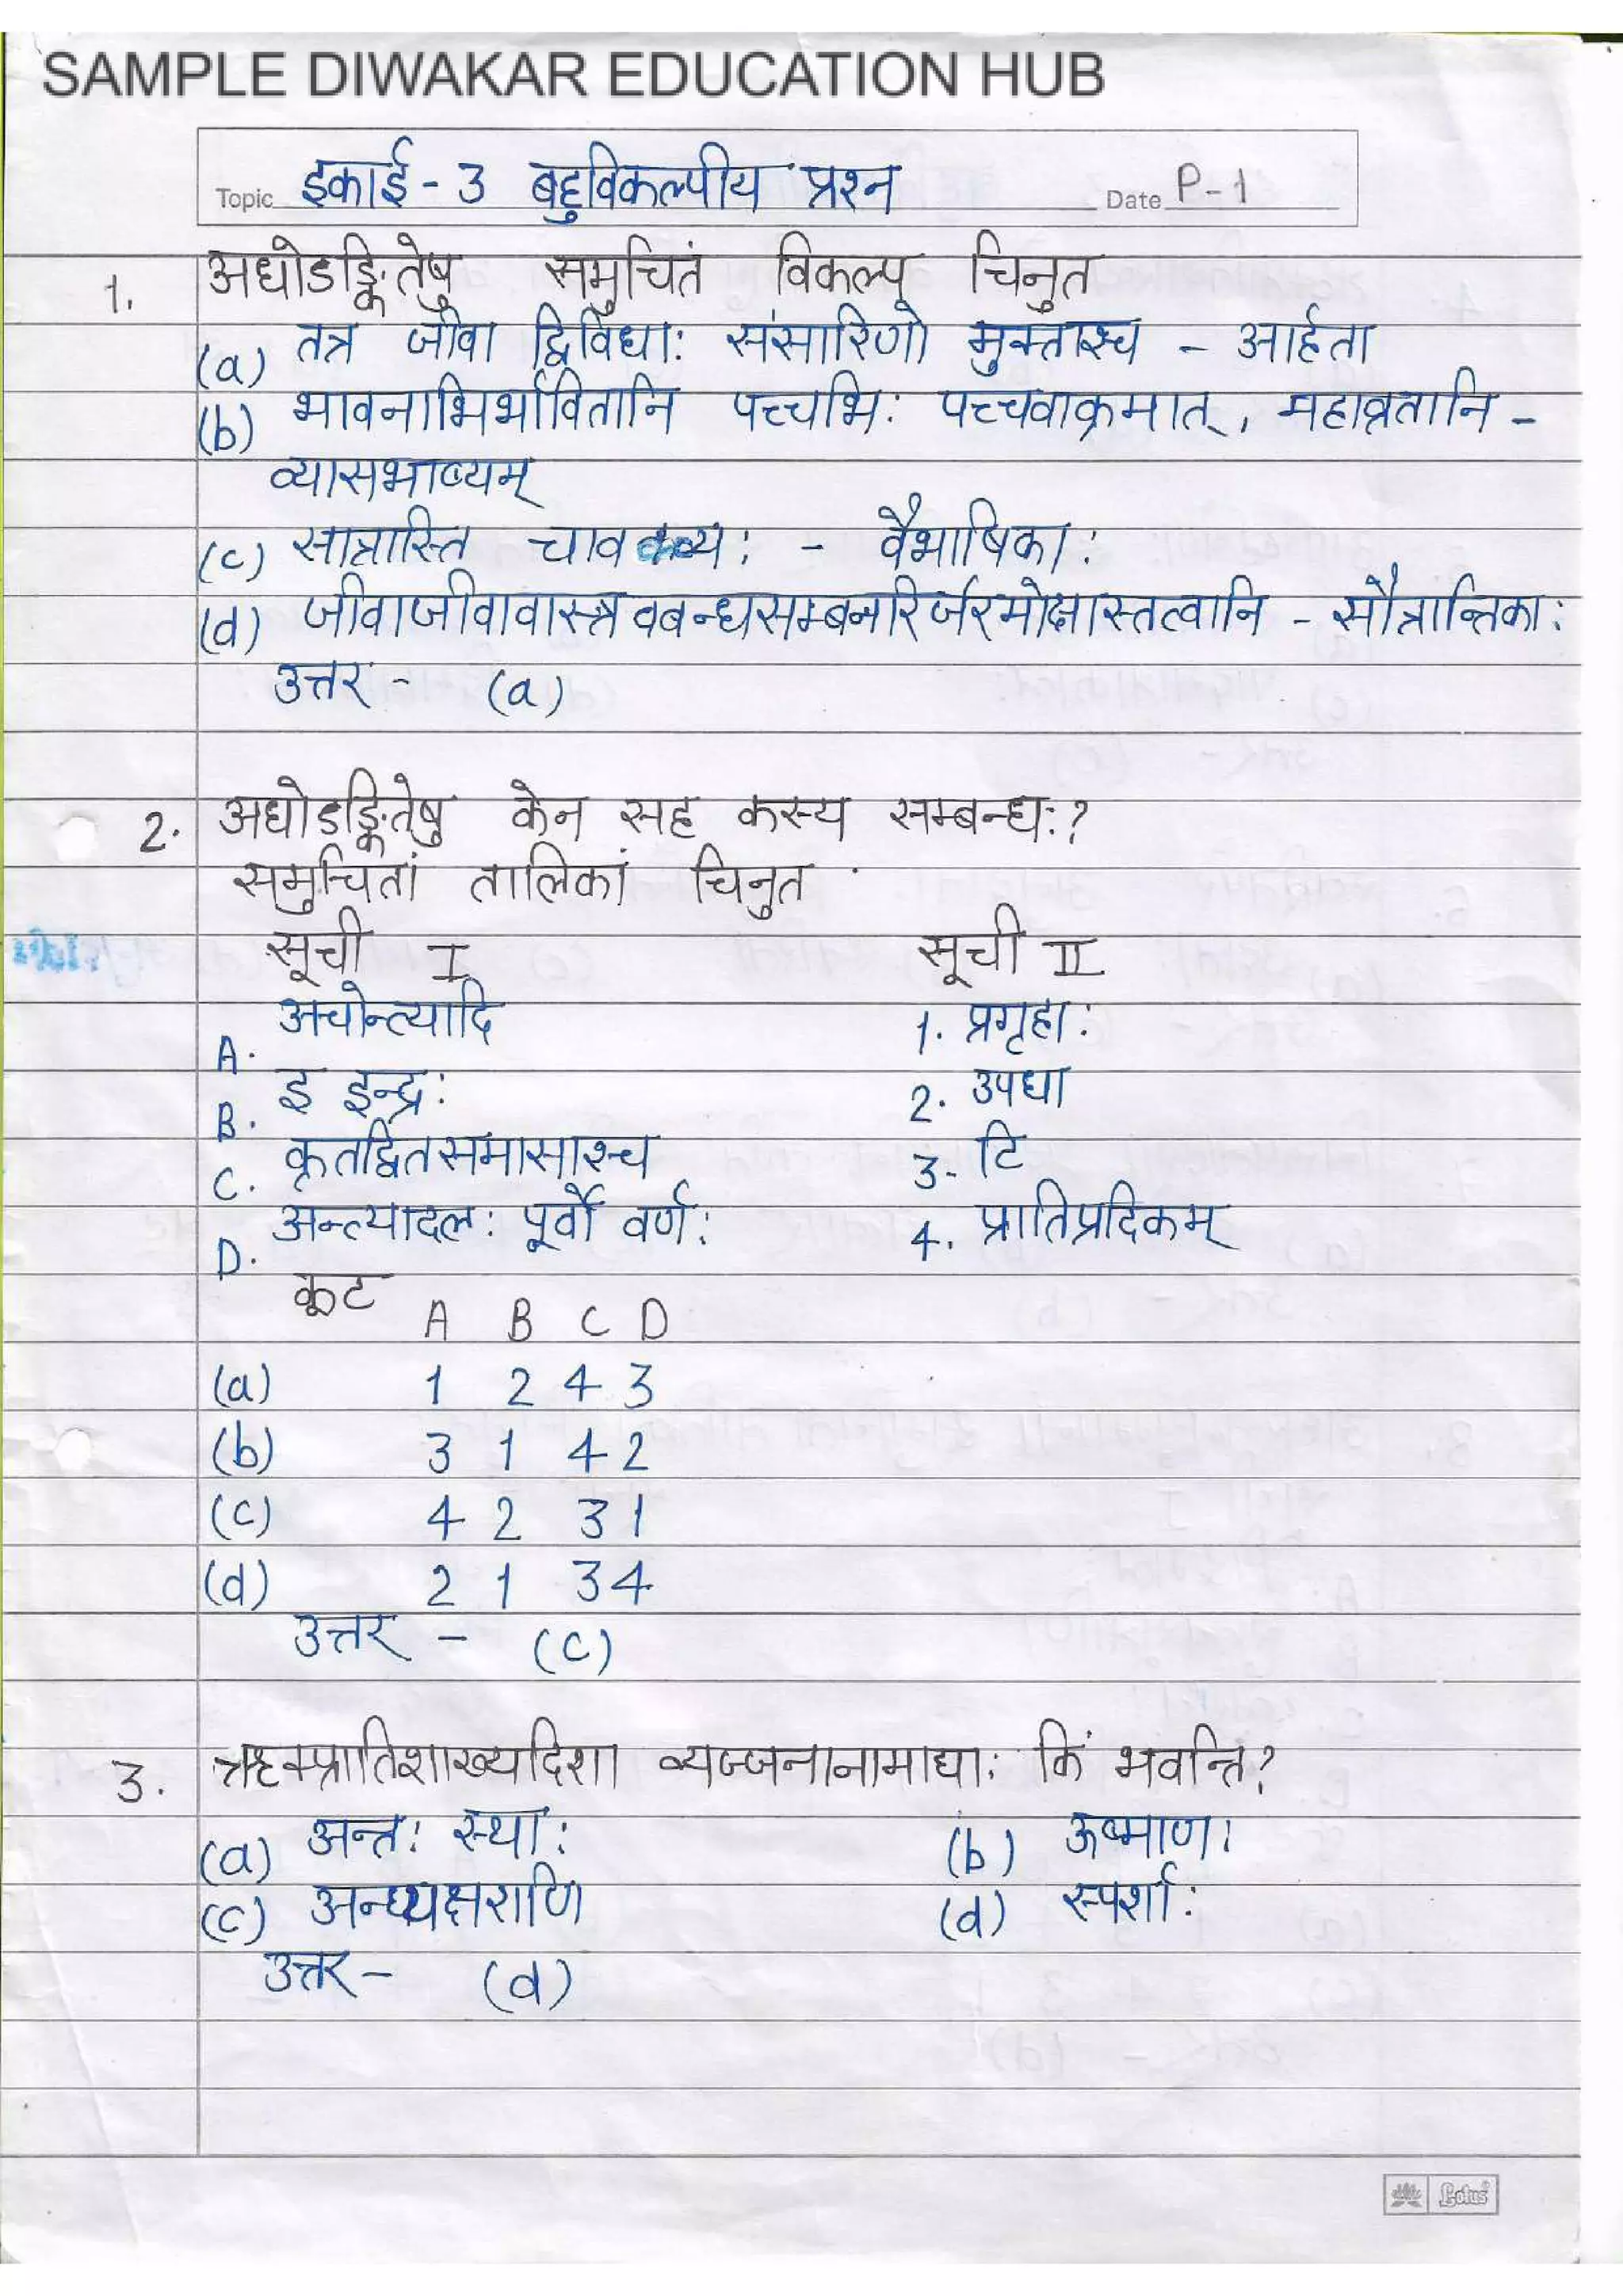 SAMPLE DIWAKAR EDUCATION HUB
Topic इकाई - 3 बहुविकल्पीय प्रश्न Date P-1
1. अधोडङ्कितेषु समुचितं विकल्प चिनुत
(a) तत्र जीवा द्विविधा: संसारिणो मुक्ताश्च - आर्हता
(b) भावनाभिर्भावितानि पच्चभि: पच्चवाक्रमात्, महाव्रतानि -
व्यासभाष्यम्
(c) सान्नास्ति चाव क्तव्य: - वैभाषिका:
(d) जीवाजीवावास्त्रवबन्धसम्बनारिर्जरमोक्षास्तत्वानि - सौत्रान्तिका:
उत्तर - (a)
2. अधोडङ्कितेषु केन सह कस्य सम्बन्ध:?
समुचितां तालिकां चिनुत
सूची I सूची II
A. अचोन्त्यादि 1. प्रगृहा:
B. इ इन्द्र: 2. उपधा
C. कृतद्धितसमासाश्च 3- टि
D. अन्त्यादल: पूर्वो वर्ण: 4. प्रातिप्रदिकम्
कूट A B C D
(a) 1 2 4 3
(b) 3 1 4 2
(c) 4 2 3 1
(d) 2 1 3 4
उत्तर - (c)
3. ऋक्प्रातिशाख्यदिशा व्यज्जनानामाद्या: किं भवन्ति?
(a) अन्त: स्था: (b) ऊष्माण:
(c) अन्ध्यक्षराणि (d) स्पर्शा:
उत्तर - (d)
Lotus